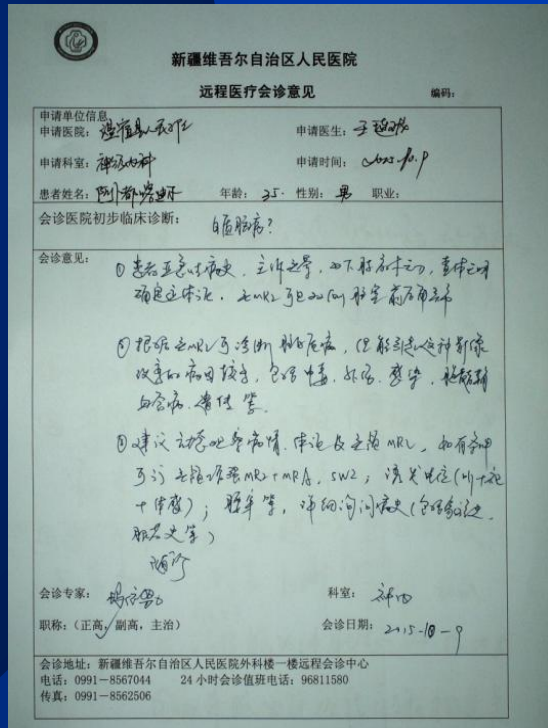 新疆维吾尔自治区人民医院
远程医疗会诊意见
编码：
申请单位信息
申请医院：温宿县人民医院
申请医生：
申请科室：神经内科
申请时间：2015.10.9
患者姓名：阿都 年龄：35. 性别：男 职业：
会诊医院初步临床诊断：
白质脑病？
会诊意见：
① 患者亚急性病史，主诉头晕，双下肢无力，查体
确定体征，头MRI 双侧
② 根据头MRI可诊断脑病，但能引起这种影像
改变的病因较多，包括中毒、外伤、感染、脱髓鞘
白质病、遗传等。
③ 建议动态观察病情、体征及头颅MRI，如有条件
可行头颅增强MRI+MRA，SWI；诱发电位（
+体感）；腰穿等，详细询问病史（包括
服药史等）
随诊
会诊专家：
科室：神内
职称：（正高，副高，主治）
会诊日期：2015-10-9
会诊地址：新疆维吾尔自治区人民医院外科楼一楼远程会诊中心
电话：0991－8567044 24小时会诊值班电话：96811580
传真：0991－8562506